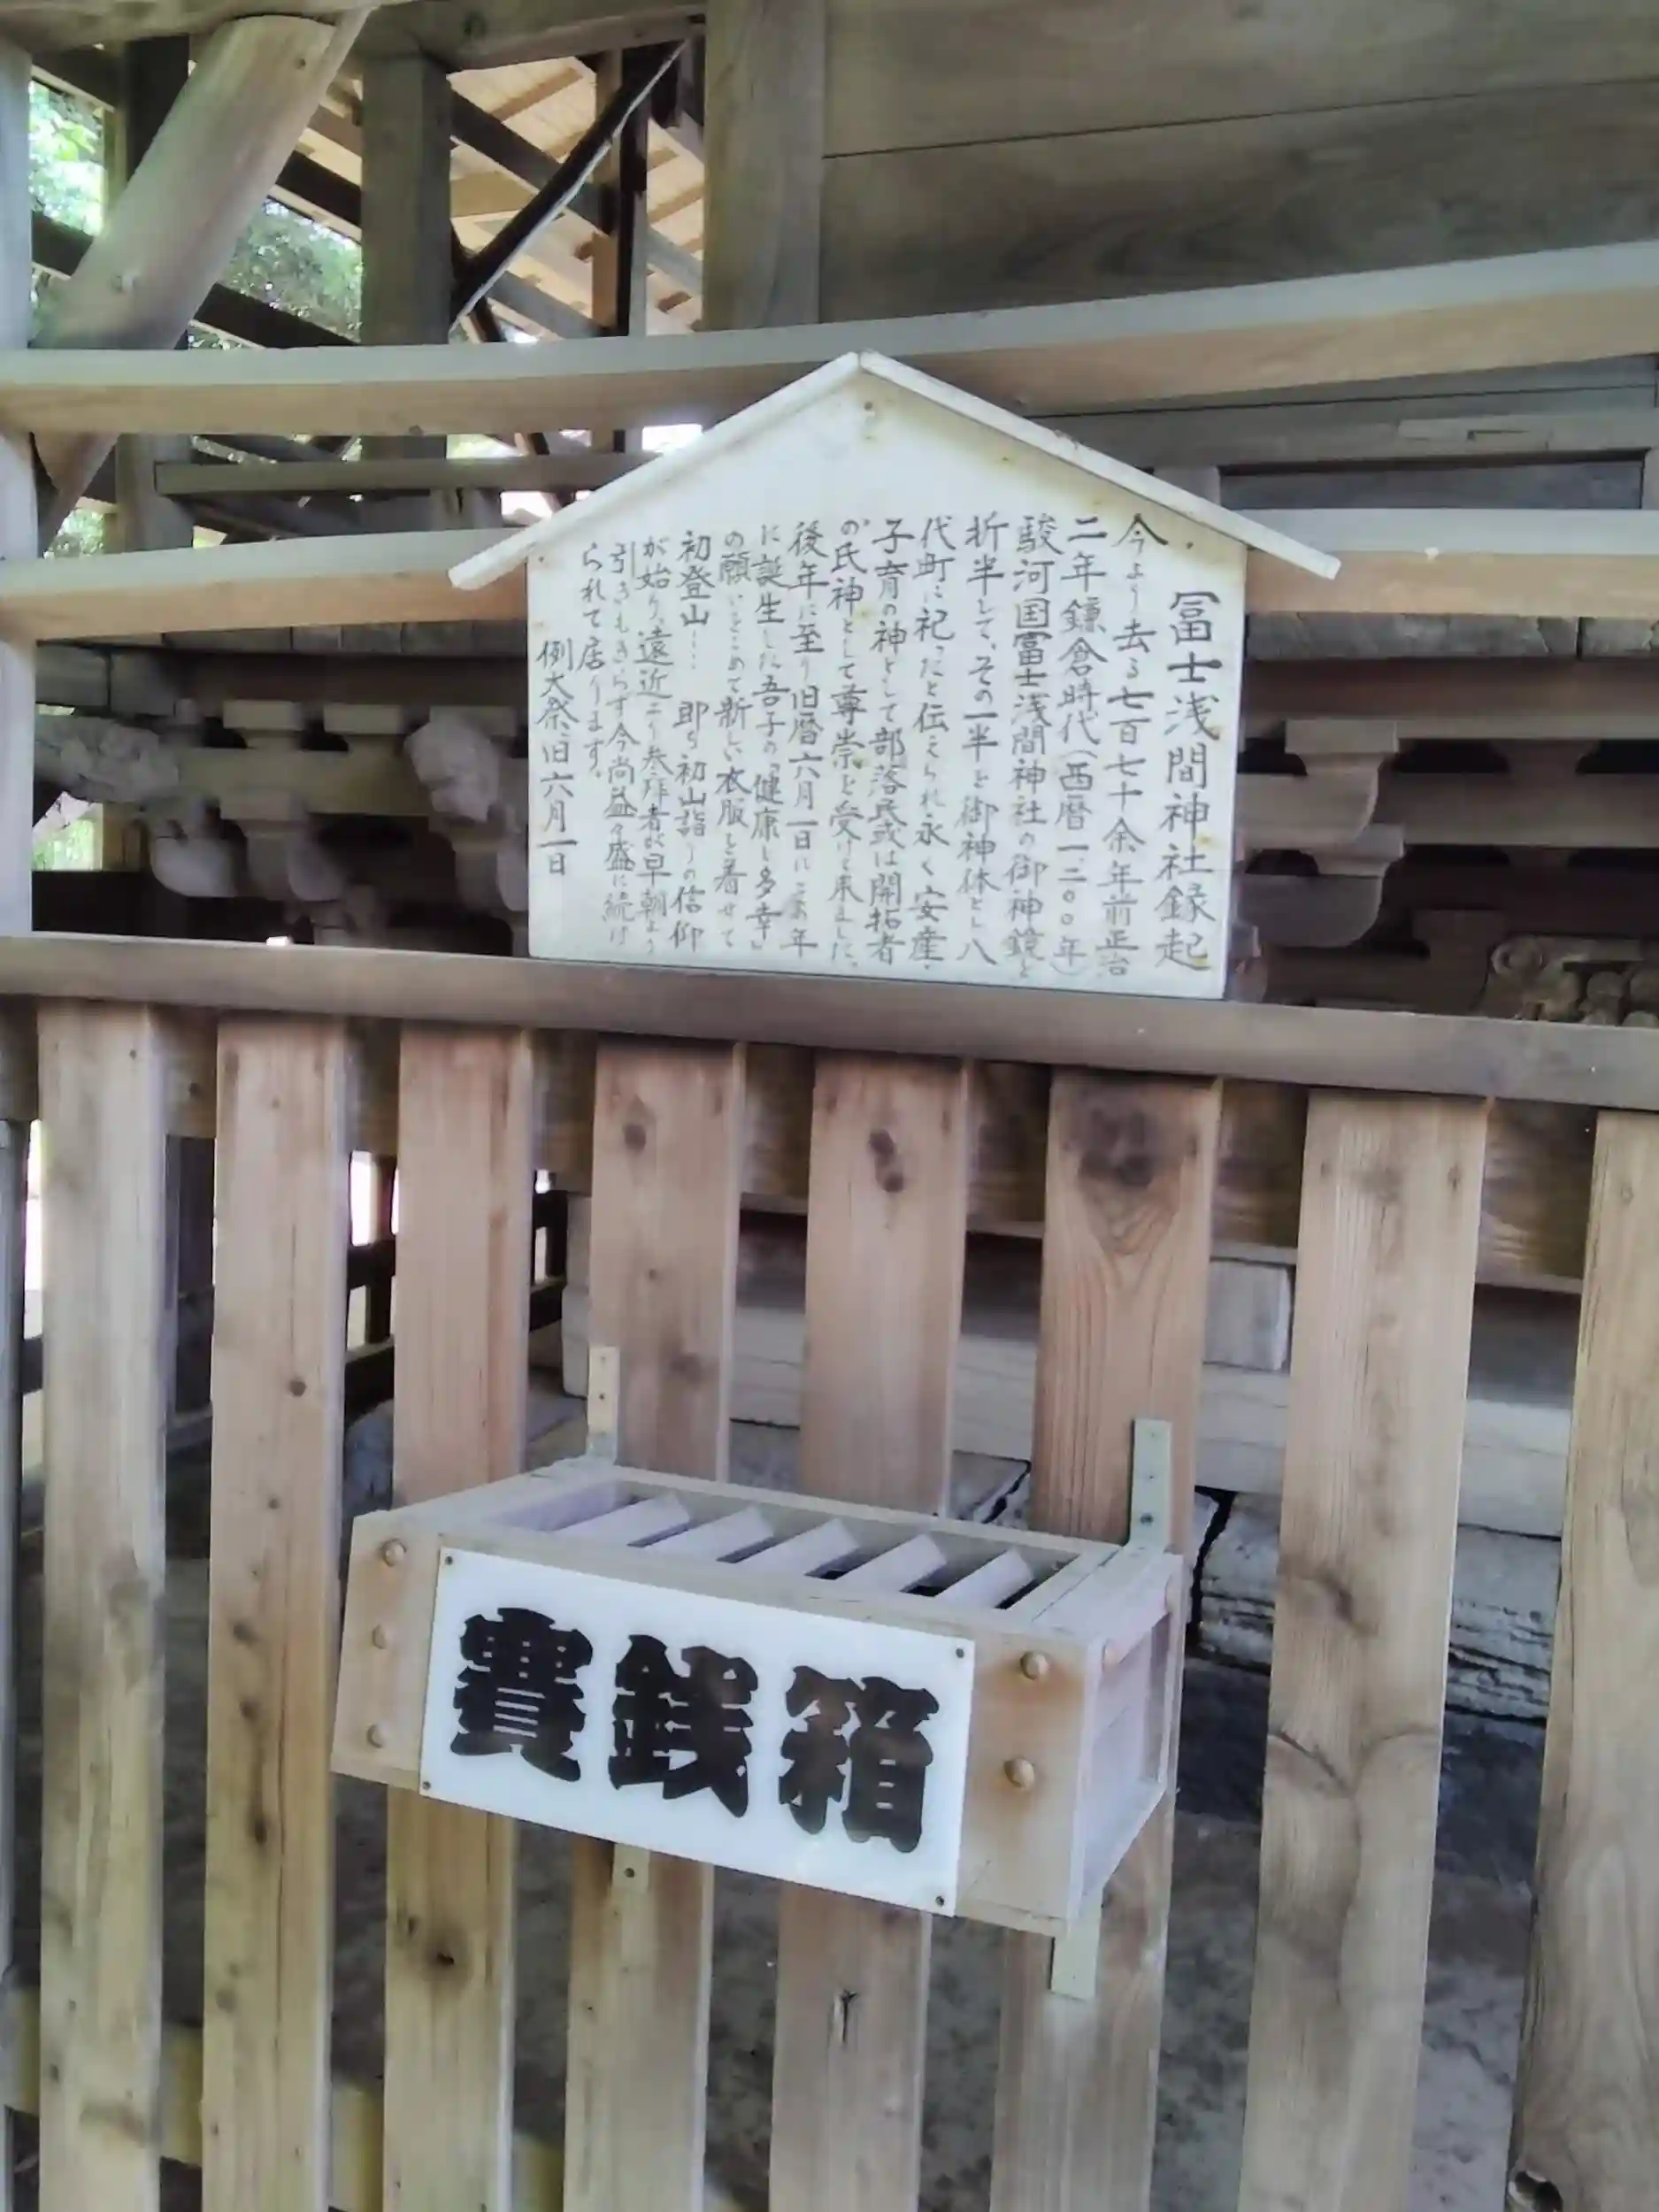 冨士浅間神社録起
今より去る七百七十余年前正治
二年鎌倉時代(西暦一、二〇〇年)
駿河国冨士浅間神社の御神鏡を
折半して、その一半を御神体とし八
代町に祀ったと伝えられ永く安産・
子育の神として部落民或は開拓者
の氏神として尊崇を受けて来ました。
後年に至り旧暦六月一日に
年
に誕生した吾子の「健康と多幸」
の願いをこめて新しい衣服を着せて
初登山…… 即ち初山詣りの信仰
が始り、遠近より参拝者が早朝より
引きもきらず今尚益々盛に続け
られて居ります。
例大祭、旧六月一日
賽銭箱